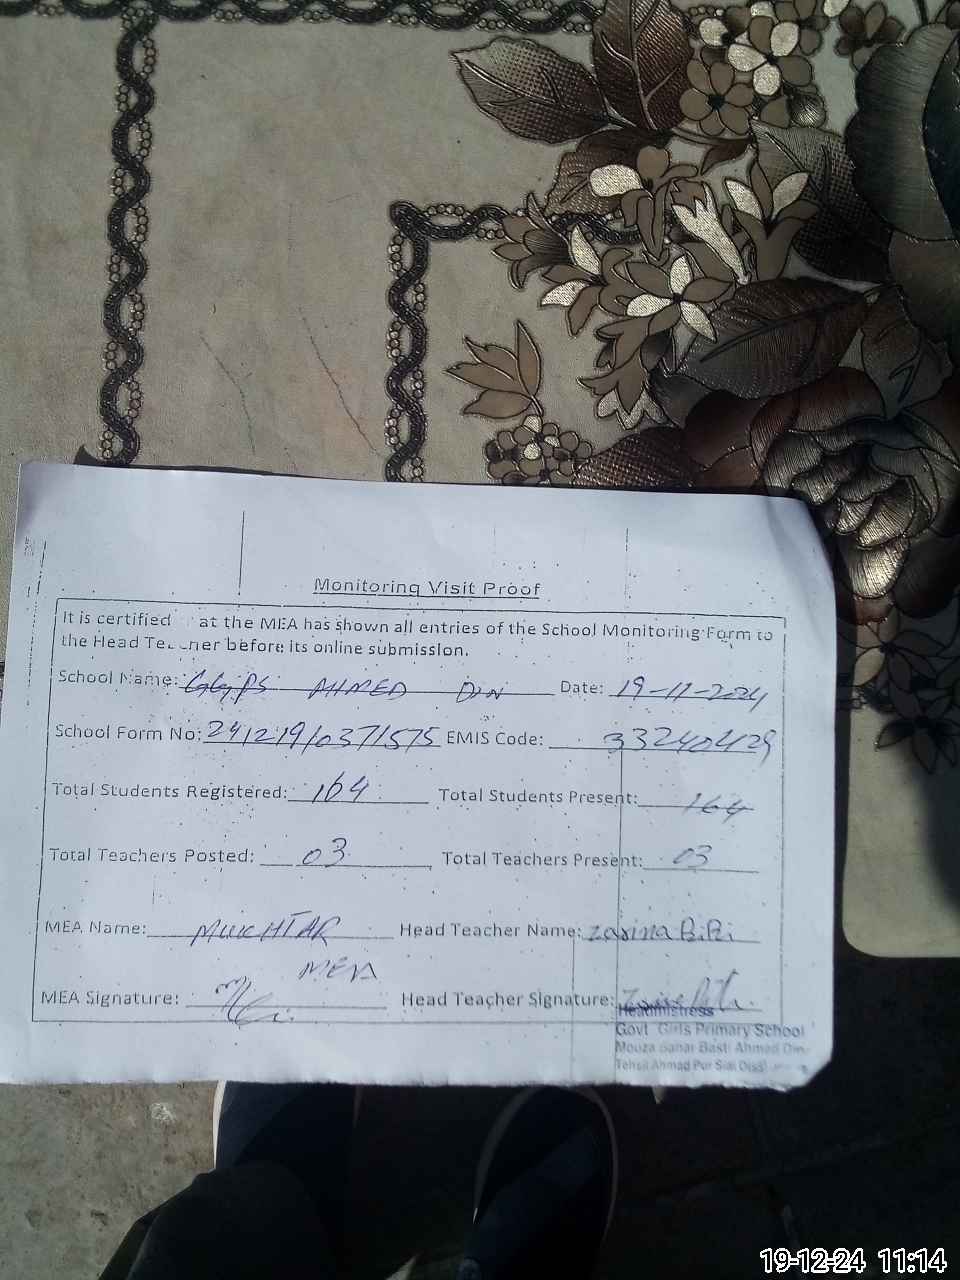 Monitoring Visit Proof
It is certified at the MEA has shown all entries of the School Monitoring Form to
the Head Teacher before its online submission.
School Name: GGPS AHMED DIN Date: 19-11-2024
School Form No: 241219/0371575 EMIS Code: 33240429
Total Students Registered: 164 Total Students Present: 164
Total Teachers Posted: 03 Total Teachers Present: 03
MEA Name: MUKHTAR Head Teacher Name: Zarina Bibi
MEA
MEA Signature: Head Teacher Signature:
Headmistress
Govt Girls Primary School
Mouza Bahar Basti Ahmad Din
Tehsil Ahmad Pur Sial
19-12-24 11:14